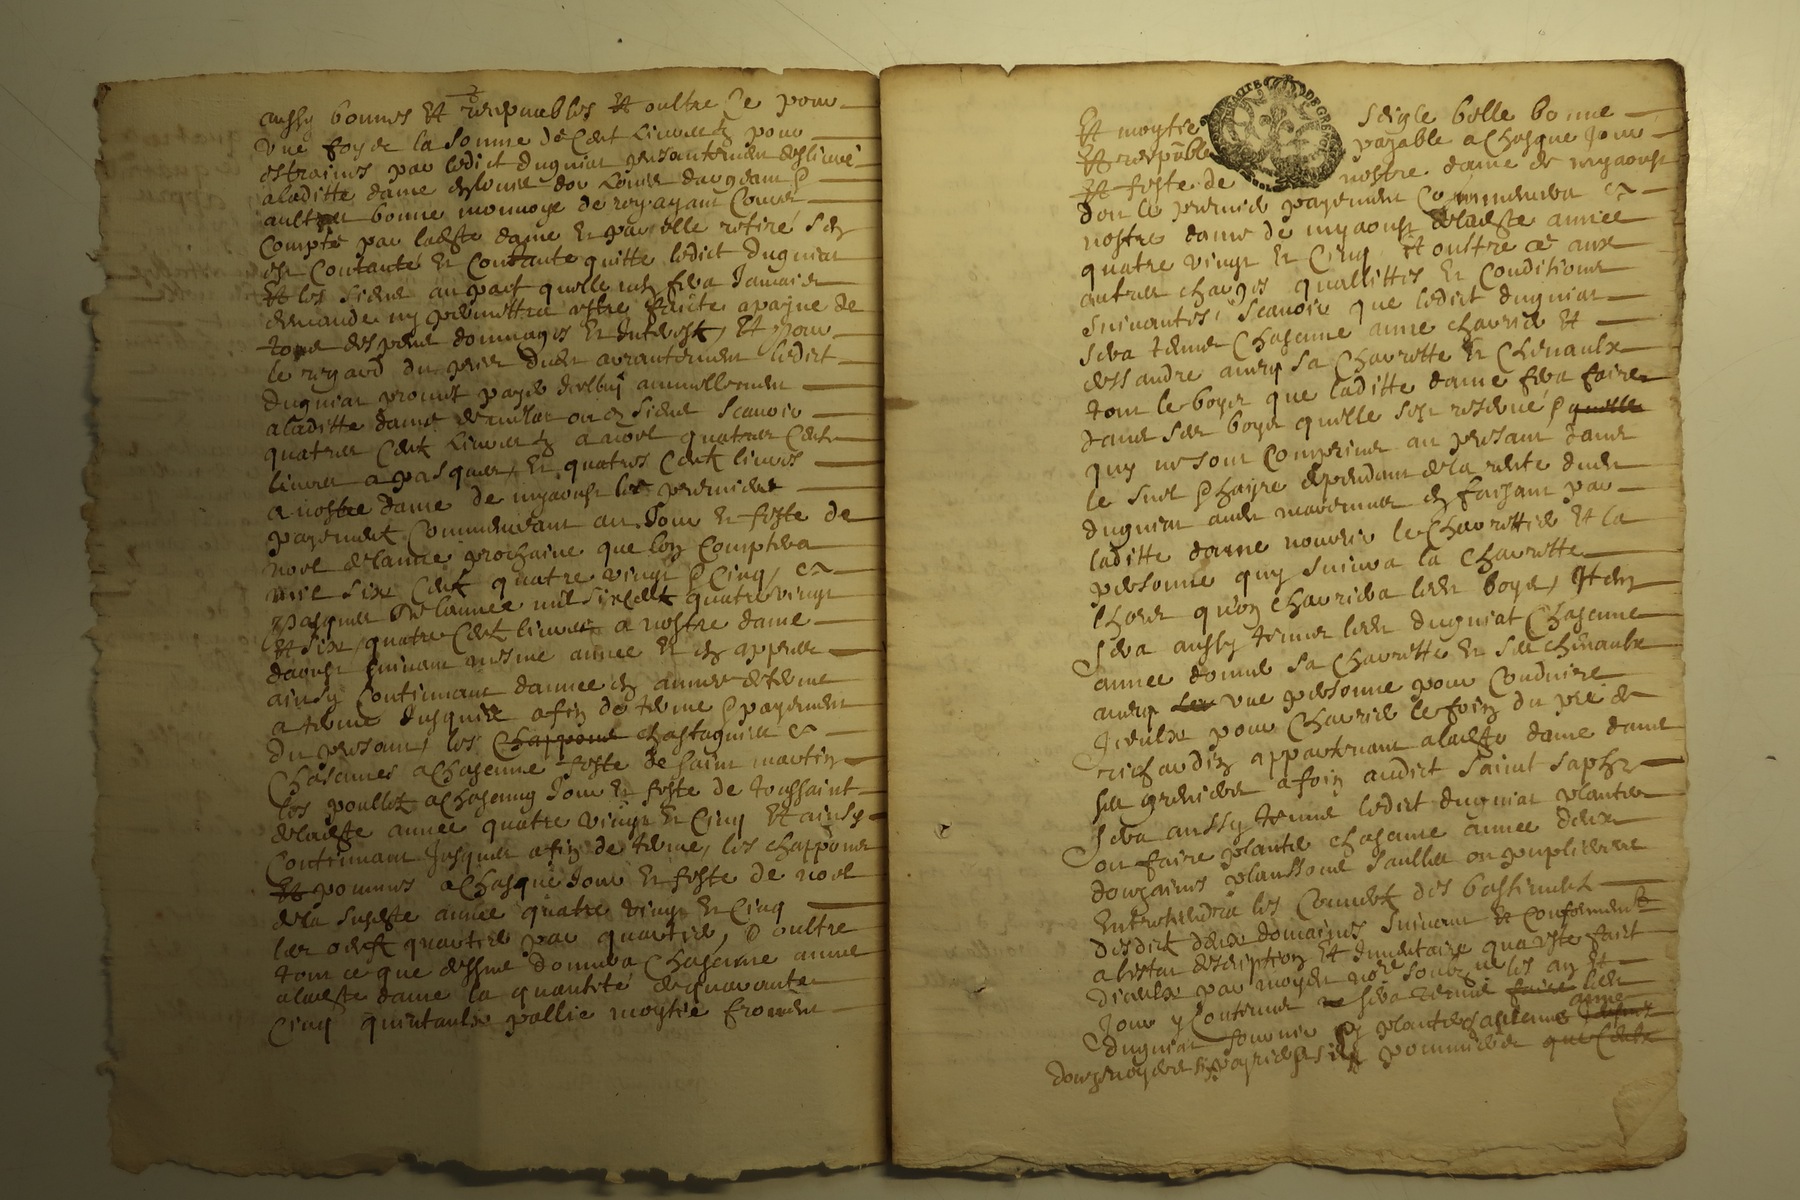 aussy bonnes Et receptuables Et oultre Ce pour
vne foys la somme de Cent Liures pour
estraines par ledict duguiat presantement deslivré
a laditte dame en louis dor Louis dargeant &
aultre bonne monnoye de roy ayant Cours
Compté par ladicte dame Et par elle retiré sen
est Contanté Et Contante quitte ledict duguiat
Et les siens au pact quelle nen fera Jamais
demande ny permettra estre faicte a payne de
tous despens dommages Et Interest, Et pour
le regard du prix du present ledict
duguiat promet payer annuellement
a laditte dame ou es siens Scauoir
quatre Cent Liures a noel quatre Cent
liures a pasques, Et quatres Cent livres
a nostre dame de myaoust les premiers
payement Commencant au Jour Et feste de
noel de lannee prochaine que lon Comptera
mil six Cent quatre vingt & Cinq, &
pasques de lannee mil six Cent quatre vingt
Et six, quatre Cent liures a nostre dame
daoust suiuant mesme annee Et en appres
ainsy Continuant dannee en annee de terme
a terme Jusques a fin de terme & payement
du presant, les chappons chastagnes &
Chascunes a Chascunne feste de Saint martin
les poullets a Chascung Jour Et feste de toussaint
de ladicte annee quatre vingt Et Cinq Et ainsy
Continuant Jusques a fin de terme, les chappons
Et pommes a Chasque Jour Et feste de noel
de la susdicte annee quatre vingt Et Cinq
les oeufs quartier par quartier, & oultre
tout ce que dessus donnera Chascune annee
a ladicte dame la quantité de quarante
Cinq quintaulx pallie moytié froment
Et moytié seigle belle bonne
Et receptuable payable a Chasque Jour
Et feste de nostre dame de myaoust
dont le premier payement Commencera
nostre dame de myaoust de ladicte annee
quatre vingt Et Cinq Et oultre ce aux
autres charges quallittes Et Conditions
suiuantes, Scauoir que ledict duguiat
sera tenu Chascune annee charrier Et
dessandre auecq sa Charrette Et Cheuaulx
tout le boys que laditte dame fera faire
dans ses boys quelle sest reserué &
qui ne sont Comprins au presant dans
le suel & hayre dependant de la vente dudit
duguiat audit en faisant par
laditte dame nourrir le Charrettier Et la
personne quy suiura la Charrette
lhors quon charriera ledit boys, Item
Sera aussy tenu ledit duguiat Chascune
annee donner sa Charrette Et ses cheuaulx
auecq vne personne pour Conduire
Iceulx pour Charrier le foin du pré de
richardin appartenant a ladicte dame dans
ses greniers a foin audict Saint Saphr
Sera aussy tenu ledict duguiat planter
ou faire planter chascune annee deux
douzaines planssons saulles ou pupliers
Entretiendra les Couuert des bastiments
desdict deux domaines suiuant Et Conformement
a lestat description Et Inventaire qua este faict
diceulx par moyen nore soubzne les an Et
Jour y Contenu sera tenu ledit
duguiat fournir & planter chascune annee
douze noyers & six pommiers